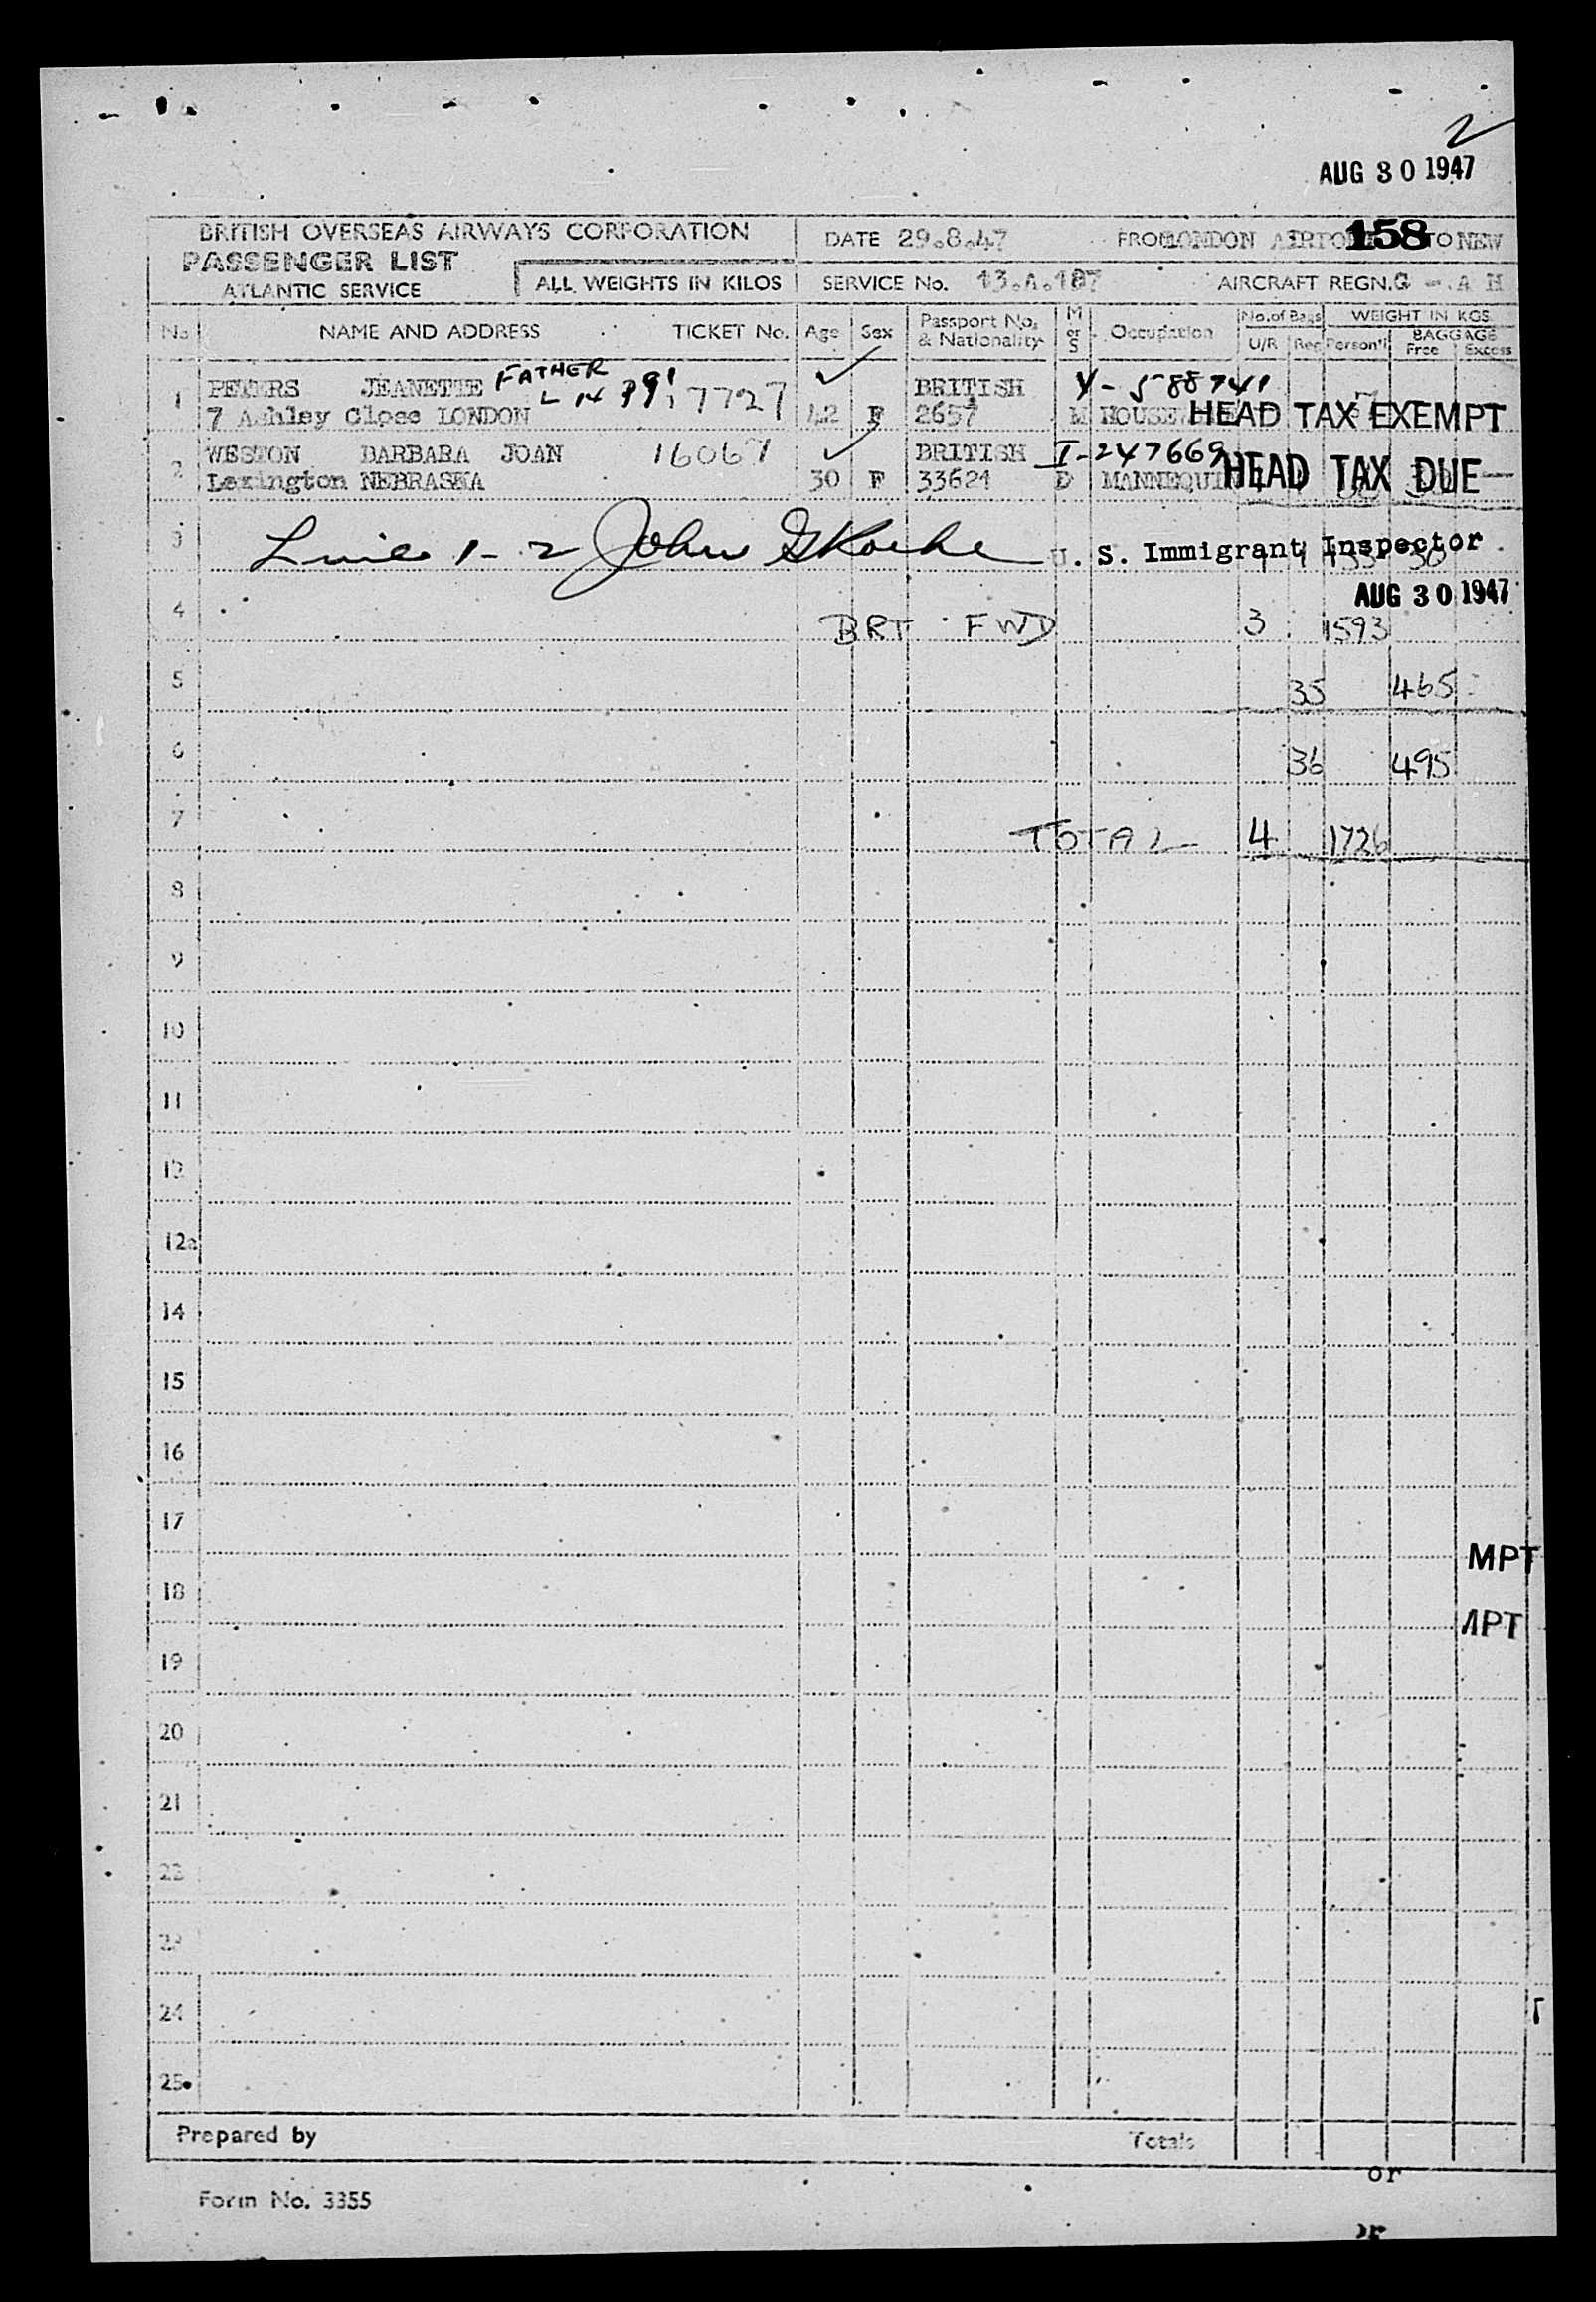 2
AUG 30 1947
BRITISH OVERSEAS AIRWAYS CORPORATION
PASSENGER LIST
ATLANTIC SERVICE
ALL WEIGHTS IN KILOS
DATE 29.8.47
FROM LONDON AIRPORT TO NEW
158
SERVICE No. 13.A.187
AIRCRAFT REGN. G - . A H
No NAME AND ADDRESS TICKET No. Age Sex Passport No. & Nationality M or S Occupation No. of Bags U/R Reg WEIGHT IN KGS. Person'l BAGGAGE Free Excess
FATHER
1 PETERS JEANETTE 7727 BRITISH
7 Ashley Close LONDON 42 F 2657 M HOUSE
HEAD TAX EXEMPT
2 WESTON BARBARA JOAN 16067 BRITISH I-247669
Lexington NEBRASKA 30 F 33621 D MANNEQUIN
HEAD TAX DUE
3 Line 1-2 John U. S. Immigrant Inspector
AUG 30 1947
4 BRT FWD 3 1593
5 35 465
6 36 495
7 TOTAL 4 1726
8
9
10
11
12
12a
14
15
16
17
MPT
18
MPT
19
20
21
22
23
24
25
Prepared by Totals
or
Form No. 3355
or